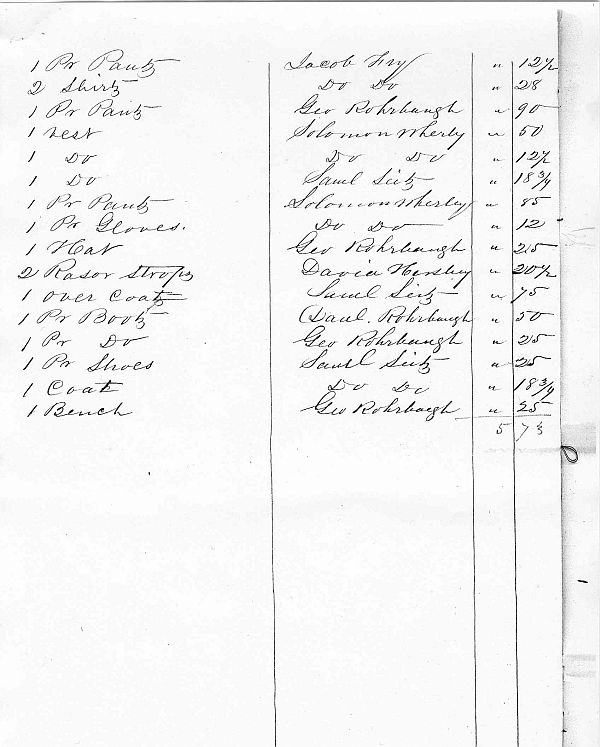 1 Pr Pants Jacob Fry " 12 1/2
2 Shirts Do Do " 28
1 Pr Pants Geo Rohrbaugh " 90
1 vest Solomon Wherly " 50
1 Do Do Do " 12 1/2
1 Do Saml Seitz " 18 3/4
1 Pr Pants Solomon Wherley " 85
1 Pr Gloves. Do Do " 12
1 Hat Geo Rohrbaugh " 25
2 Rasor Strops David Hershy " 20 1/2
1 over Coat Saml Seitz " 75
1 Pr Boots Danl. Rohrbaugh " 50
1 Pr Do Geo Rohrbaugh " 25
1 Pr Shoes Saml Seitz " 25
1 Coat Do Do " 18 3/4
1 Bench Geo Rohrbaugh " 25
5 73